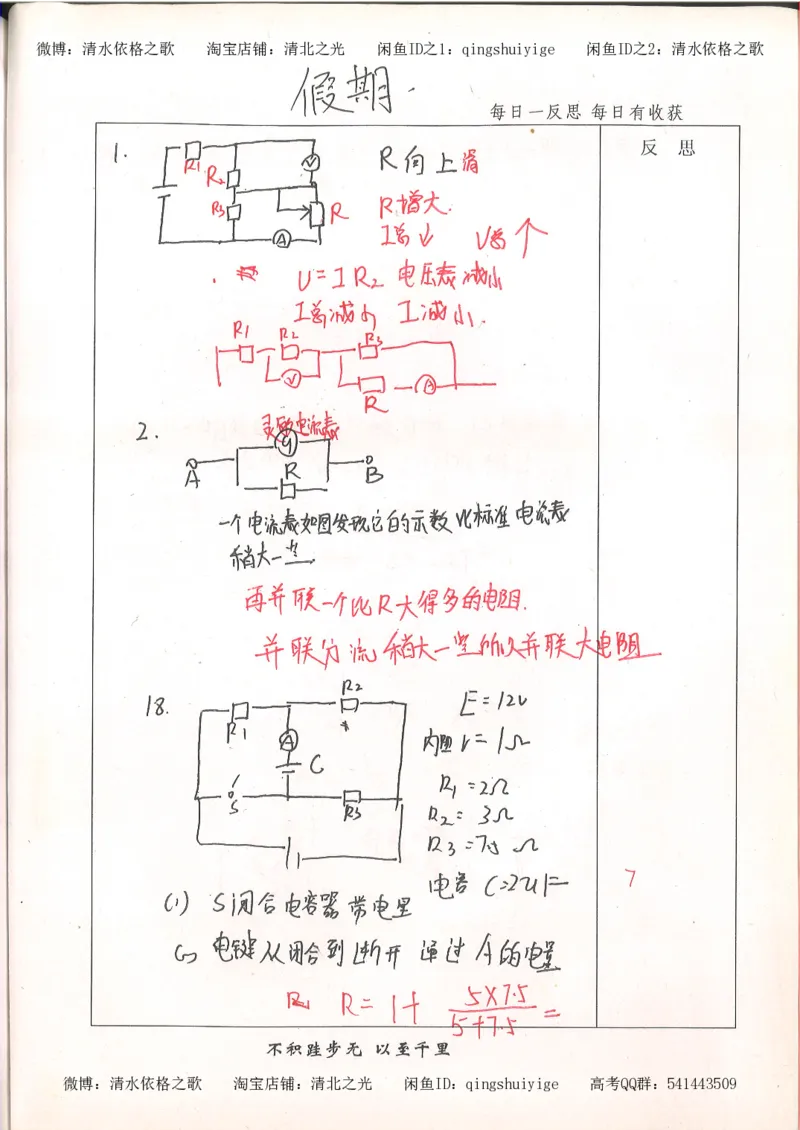 微博：清水依格之歌 淘宝店铺：清北之光 闲鱼ID之1：qingshuiyige 闲鱼ID之2：清水依格之歌
假期.
每日一反思 每日有收获
反 思
1.
R1
R2
V
R3
R
A
R向上滑
R增大.
I总↓ U总↑
U=IR2 电压表减小
I总减小 I减小.
R1 R2 R3
V
A
R
2.
灵敏电流表
G
A R B
一个电流表如图发现它的示数比标准电流表
稍大一些.
再并联一个比R大得多的电阻.
并联分流 稍大一些所以并联大电阻
18.
R2
R1
A
C
S
R3
E=12V
内阻r=1Ω
R1=2Ω
R2=3Ω
R3=7.5Ω
电容 C=2μF
7
(1) S闭合电容器带电量
电键从闭合到断开 通过A的电量
R=1+ 5×7.5 =
5+7.5
不积跬步无 以至千里
微博：清水依格之歌 淘宝店铺：清北之光 闲鱼ID：qingshuiyige 高考QQ群：541443509